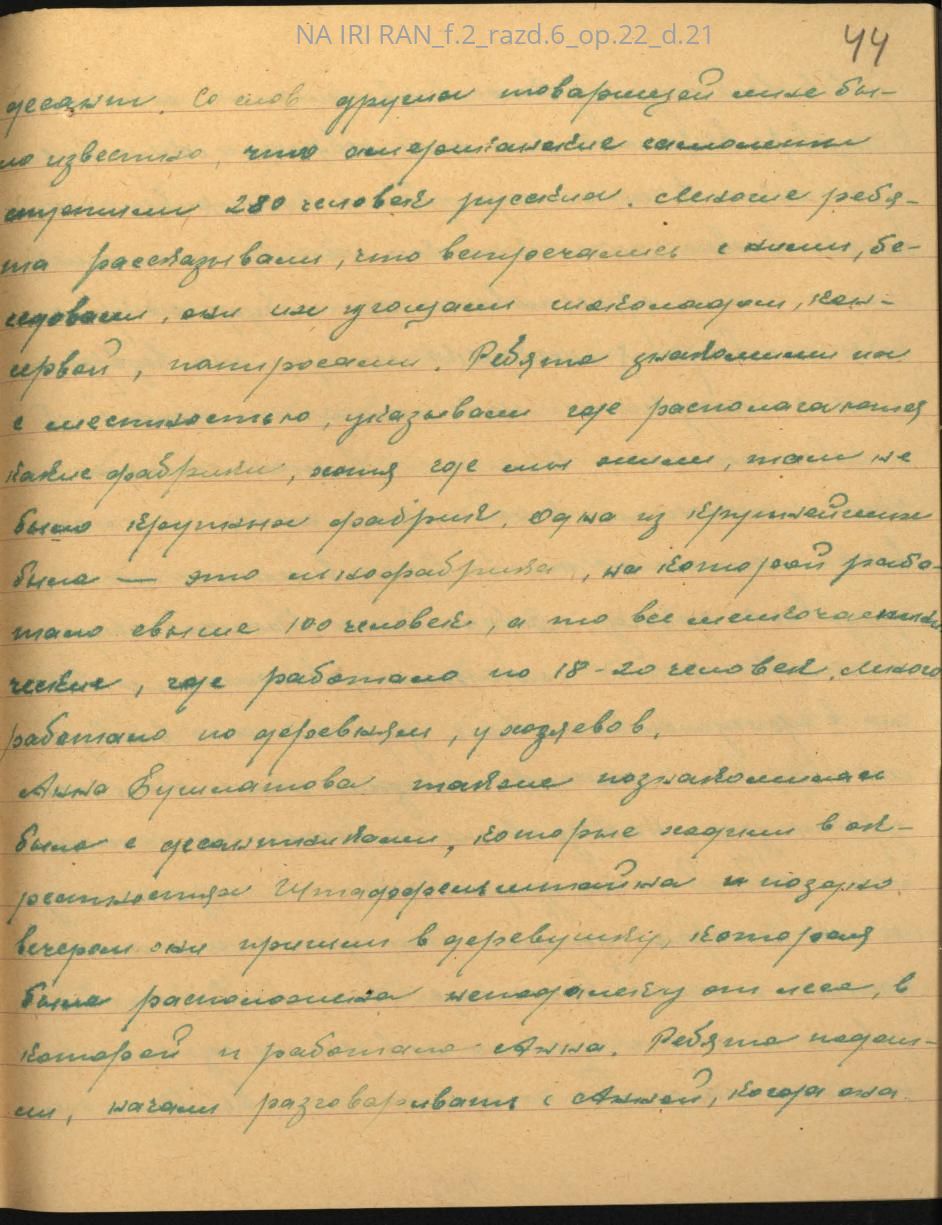 NA IRI RAN_f.2_razd.6_op.22_d.21
44
десант. Со слов других товарищей мне бы-
ло известно, что американские самолеты
спустили 280 человек русских. Многие ребя-
та рассказывали, что встречались с ними, бе-
седовали, они их угощали шоколадом, кон-
сервой, папиросами. Ребята знакомили их
с местностью, указывали где располагаются
какие фабрики, хотя где мы жили, там не
было крупных фабрик. Одна из крупнейших
была — это мехофабрика, на которой рабо-
тало свыше 100 человек, а то все мелко
ческие, где работало по 18-20 человек. Много
работало по деревням, у хозяевов.
Анна Бушлатова также познакомилась
была с десантниками, которые ходили в ок-
рестностях Штаффельштайна и поздно
вечером они пришли в деревушку, которая
была расположена неподалеку от леса, в
которой и работала Анна. Ребята подош-
ли, начали разговаривать с Анной, когда она